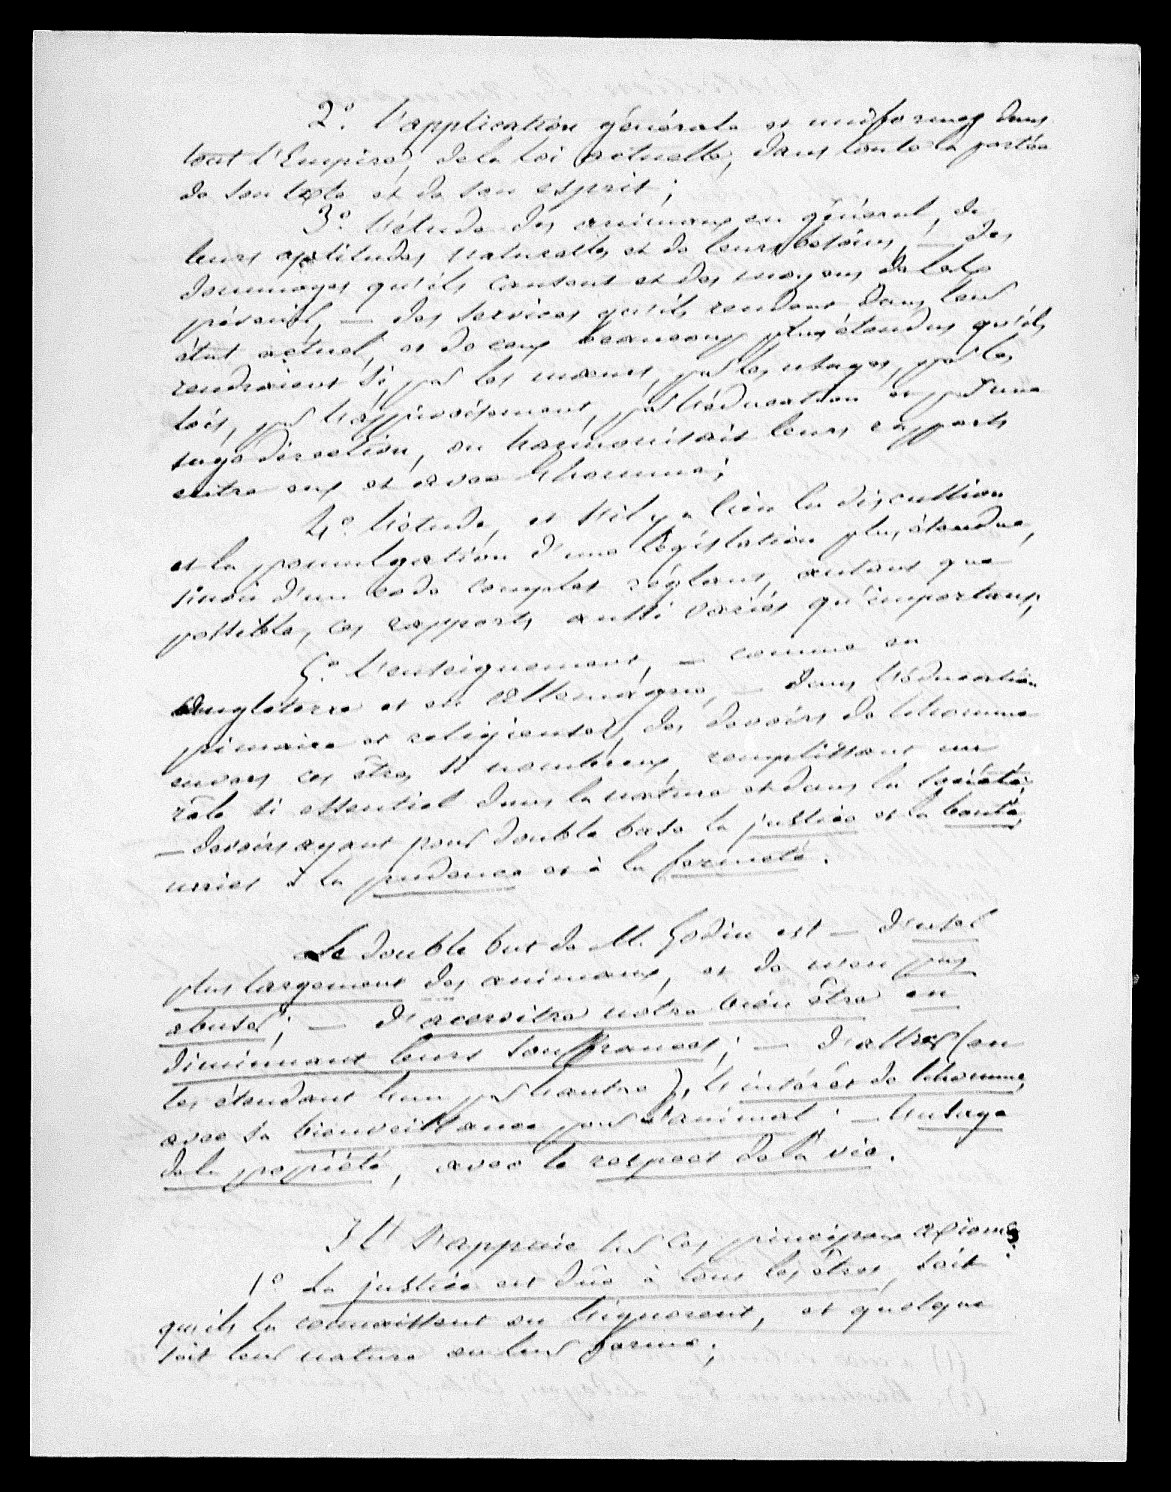 2º. l'application générale et uniforme, dans
tout l'Empire, de la loi actuelle, dans toute la portée
de son texte et de son esprit ;
3º l'étude des animaux en général, de
leurs aptitudes naturelles et de leurs besoins, — des
dommages qu'ils causent et des moyens de les
prévenir, — des services qu'ils rendent dans leur
état actuel, et de ceux beaucoup plus étendus qu'ils
rendraient si, par les mœurs, par les usages, par les
lois, par l'apprivoisement, par l'éducation et par une
sage direction, on harmonisait leurs rapports
entre eux et avec l'homme ;
4º l'étude, et s'il y a lieu la discussion
et la promulgation d'une législation plus étendue,
sinon d'un code complet réglant, autant que
possible, ces rapports aussi variés qu'importans,
5º l'enseignement, — comme en
Angleterre et en Allemagne, — dans l'éducation
primaire et religieuse, des devoirs de l'homme
envers ces êtres si nombreux, remplissant un
rôle si essentiel dans la nature et dans la société,
— devoirs ayant pour double base la justice et la bonté,
unies à la prudence et à la fermeté.
Le double but de M. Godin est — d'user
plus largement des animaux, et de n'en pas
abuser ; — d'accroître notre bien être en
diminuant leurs souffrances ; — d'allier (en
les étendant l'un par l'autre), l'intérêt de l'homme,
avec sa bienveillance pour l'animal ; — l'usage
de la propriété, avec le respect de la vie.
Il s'appuie sur ces principaux axiomes :
1º La justice est dûe à tous les êtres, soit
qu'ils la connaissent ou l'ignorent, et quelque
soit leur nature ou leur forme ;